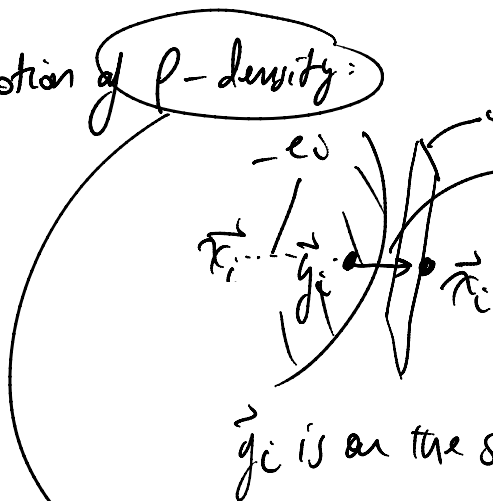 otion of ρ-density:
-ev
x⃗i y⃗i x⃗i
y⃗i is on the s